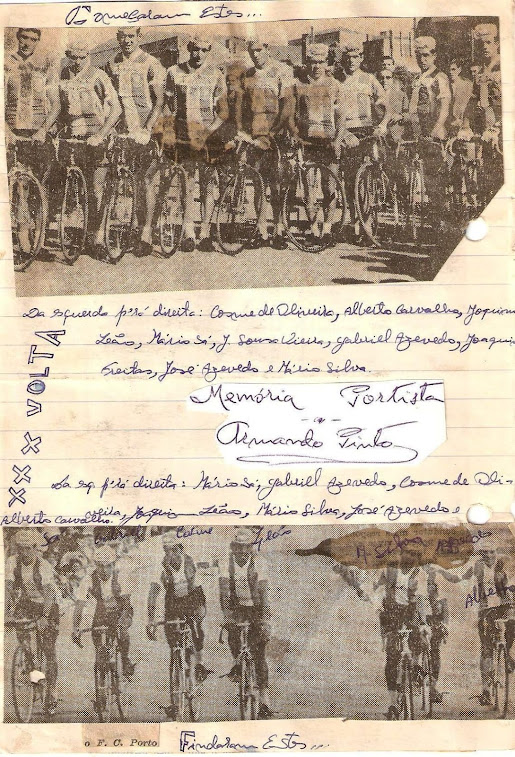 Começaram Estes...
Da esquerda p'rá direita: Cosme de Oliveira, Alberto Carvalho, Joaquim
Leão, Mário Sá, J. Sousa Vieira, Gabriel Azevedo, Joaquim
Freitas, José Azevedo e Mário Silva.
XXX VOLTA
Memória Portista
Armando Pinto
Da esq p'rá direita: Mário Sá, Gabriel Azevedo, Cosme de Oli-
veira, Joaquim Leão, Mário Silva, José Azevedo e
Alberto Carvalho.
Sá Gabriel Cosme Leão M. Silva Azevedo
Alberto
o F. C. Porto
Findaram Estes...